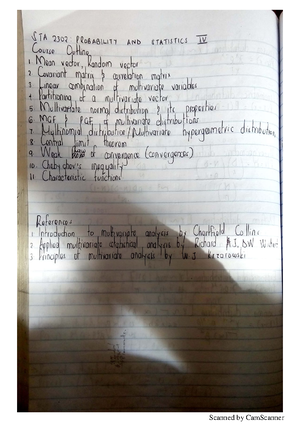 STA 2302 PROBABILITY AND STATISTICS IV
Course Outline
1 Mean vector, Random vector
2 Covariant matrix & correlation matrix
3 Linear combination of multivariate variables
4 Partitioning of a multivariate vector
5 Multivariate normal distribution & its properties
6 MGF & PGF in multivariate distributions
7 Multinomial distribution / Multivariate hypergeometric distribution
8 Central limit theorem
9 Weak of convergence (convergences)
10. Chebychev's inequality
11 Characteristic functions
References
1. Introduction to multivariate analysis by Chartfield Collins
2 Applied multivariate statistical analysis by Richard A.J, DW
3 Principles of multivariate analysis by W.J
Scanned by CamScanner